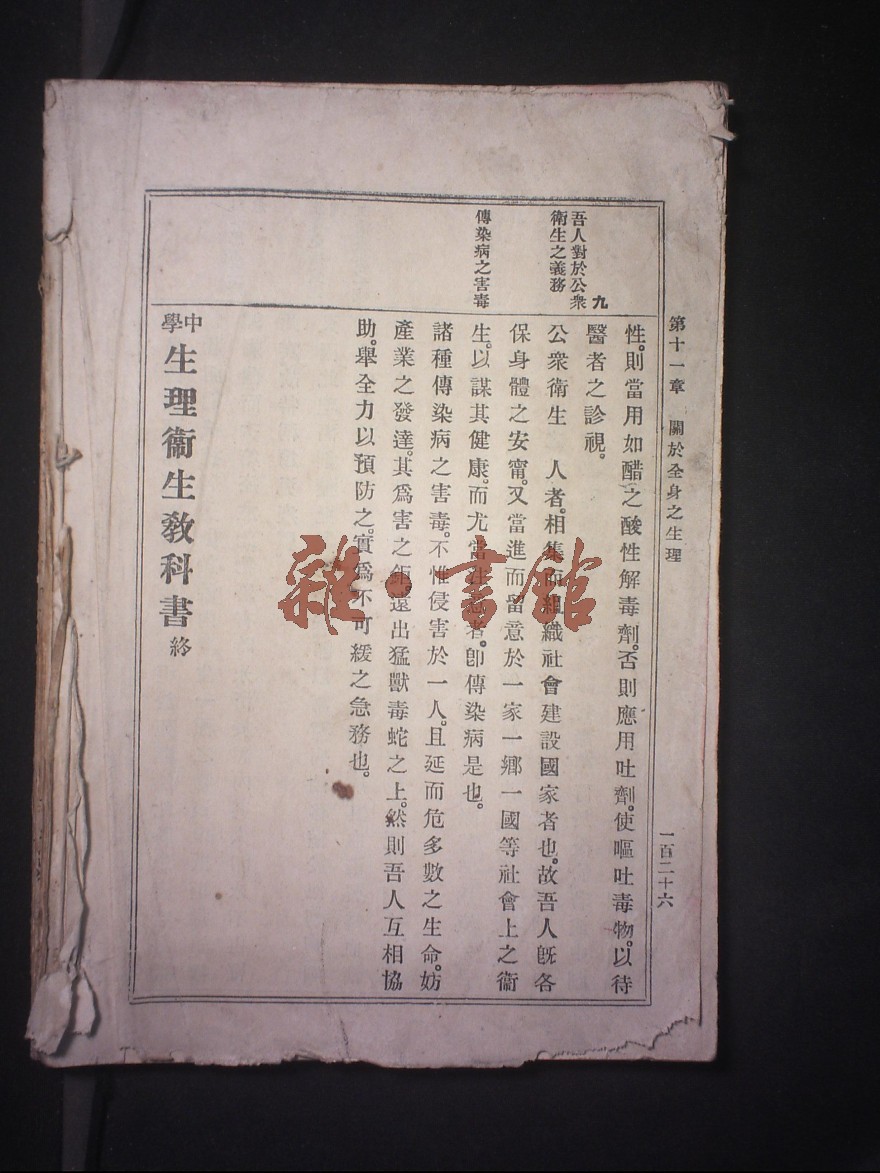 第十一章　關於全身之生理
一百二十六
九
吾人對於公衆
衛生之義務
傳染病之害毒
性。則當用如醋之酸性解毒劑。否則應用吐劑。使嘔吐毒物。以待
醫者之診視。
公衆衛生　人者。相集而組織社會建設國家者也。故吾人旣各
保身體之安甯。又當進而留意於一家一鄉一國等社會上之衞
生。以謀其健康。而尤當注意者。卽傳染病是也。
諸種傳染病之害毒。不惟侵害於一人。且延而危多數之生命。妨
產業之發達。其爲害之鉅。遠出猛獸毒蛇之上。然則吾人互相協
助。舉全力以預防之。實爲不可緩之急務也。
中學生理衞生教科書終
雜·書館